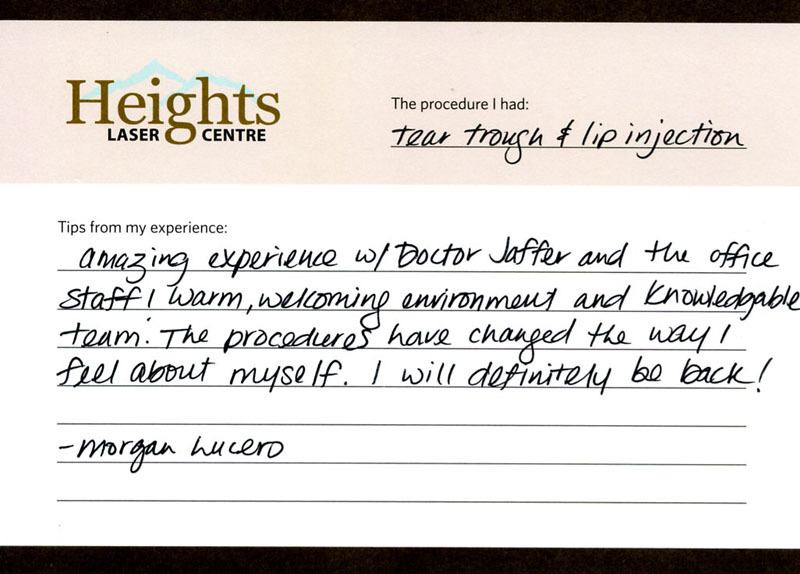 Heights
LASER CENTRE
The procedure I had:
tear trough & lip injection
Tips from my experience:
amazing experience w/ Doctor Jaffer and the office
staff! Warm, welcoming environment and knowledgable
team. The procedures have changed the way I
feel about myself. I will definitely be back!
-Morgan Lucero